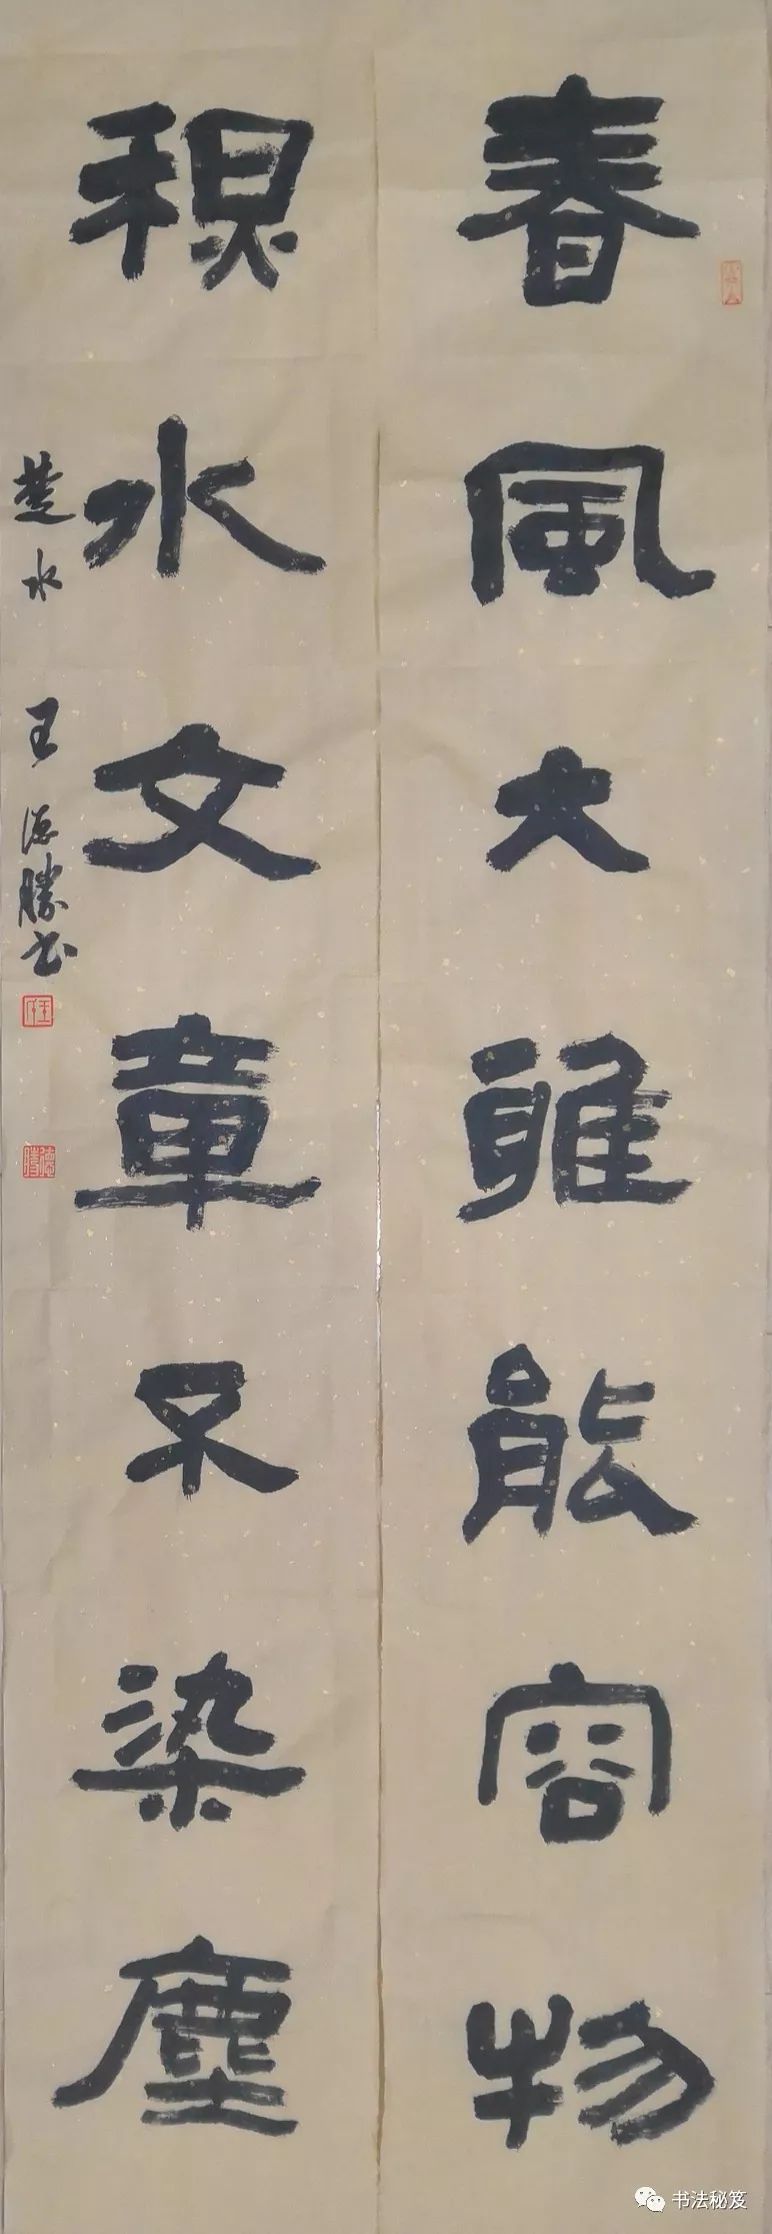 春風大雅能容物
秋水文章不染塵
楚水 王德勝书
德勝
书法秘笈